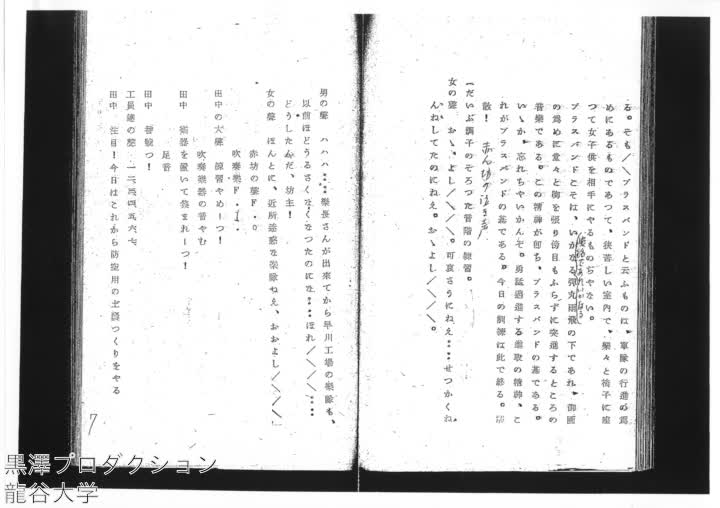 る。そも／＼ブラスバンドと云ふものは、軍隊の行進の爲
めにあるものであつて、狹苦しい室内で、樂々と椅子に座
つて女子供を相手にやるものぢやない。
ブラスバンドこそは、いかなる彈丸雨飛の下であれ、御國
の爲めに堂々と胸を張り傍目もふらずに突進するところの
音樂である。この精神が卽ち、ブラスバンドの基である。
いゝか、忘れちやいかんぞ。勇猛邁進する進取の精神、こ
れがブラスバンドの基である。今日の訓練は此で終る。解
散！
赤ん坊の泣き声
(だいぶ調子のそろつた音階の練習。
女の聲 おゝ、よし／＼／＼。可哀さうにねえ‥‥せつかくね
んねしてたのにねえ。おゝよし／＼／＼。
男の聲 ハハハ‥‥樂長さんが出來てから早川工場の樂隊も、
以前ほどうるさくなくなつたのにな‥‥ほれ／＼／＼‥‥
どうしたんだ、坊主！
女の聲 ほんとに、近所迷惑な樂隊ねえ、おおよし／＼／＼
赤坊の聲F・O
吹奏樂F・I
田中の大聲 練習やめーつ！
吹奏樂器の音やむ
田中 樂器を置いて集まれーつ！
足音
田中 番號つ！
工員達の聲 一二三四五六七
田中 注目！今日はこれから防空用の土嚢つくりをやる
7
黒澤プロダクション
龍谷大学